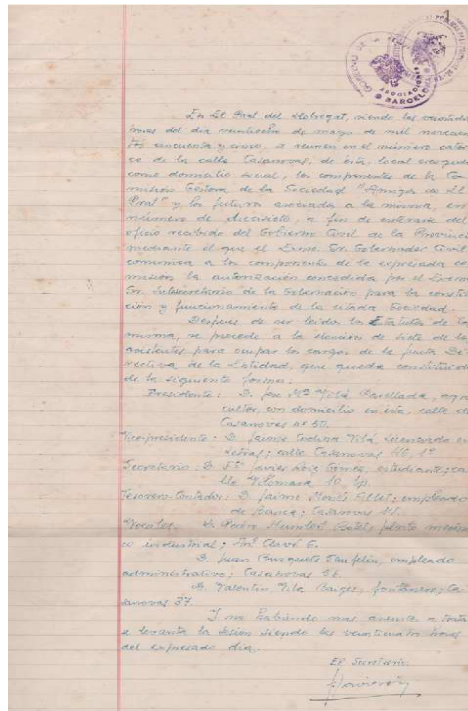 1
GOBIERNO
ASOCIACIONES
BARCELONA
En El Prat del Llobregat, siendo las veintidós
horas del día veintiocho de mayo de mil novecien
tos cincuenta y cinco, se reunen en el número cator
ce de la calle Casanovas, de ésta, local escogido
como domicilio social, los componentes de la Co
misión Gestora de la Sociedad "Amigos de El
Prat" y los futuros asociados a la misma, en
número de diecisiete, a fin de enterarse del
oficio recibido del Gobierno Civil de la Provincia
mediante el que el Excmo. Sr. Gobernador Civil
comunica a los componentes de la expresada co
misión la autorización concedida por el Excmo
Sr. Subsecretario de la Gobernación para la constitu
ción y funcionamiento de la citada Sociedad.
Después de ser leídos los Estatutos de la
misma, se procede a la elección de siete de los
asistentes para ocupar los cargos de la Junta Di
rectiva de la Entidad, que queda constituida
de la siguiente forma:
Presidente: D. José Mª, agri
cultor, con domicilio en ésta, calle de
Casanovas nº 50.
Vicepresidente: D. Jaime Codina Vilá, Licenciado en
Letras; calle Casanovas 46, 1º
Secretario: D. Javier Gómez, estudiante; ca
lle Vilomara 10, 1º
Tesorero Contador: D. Jaime, empleado
de Banca; Casanovas
Vocales. D. Pedro, perito mecáni
co industrial; Clavé
D. Juan Busquets, empleado
administrativo; Casanovas
D. Valentín Vila, fontanero; Ca
sanovas 37.
Y no habiendo más asuntos a tratar
se levanta la sesión siendo las veinticuatro horas
del expresado día.
El Secretario